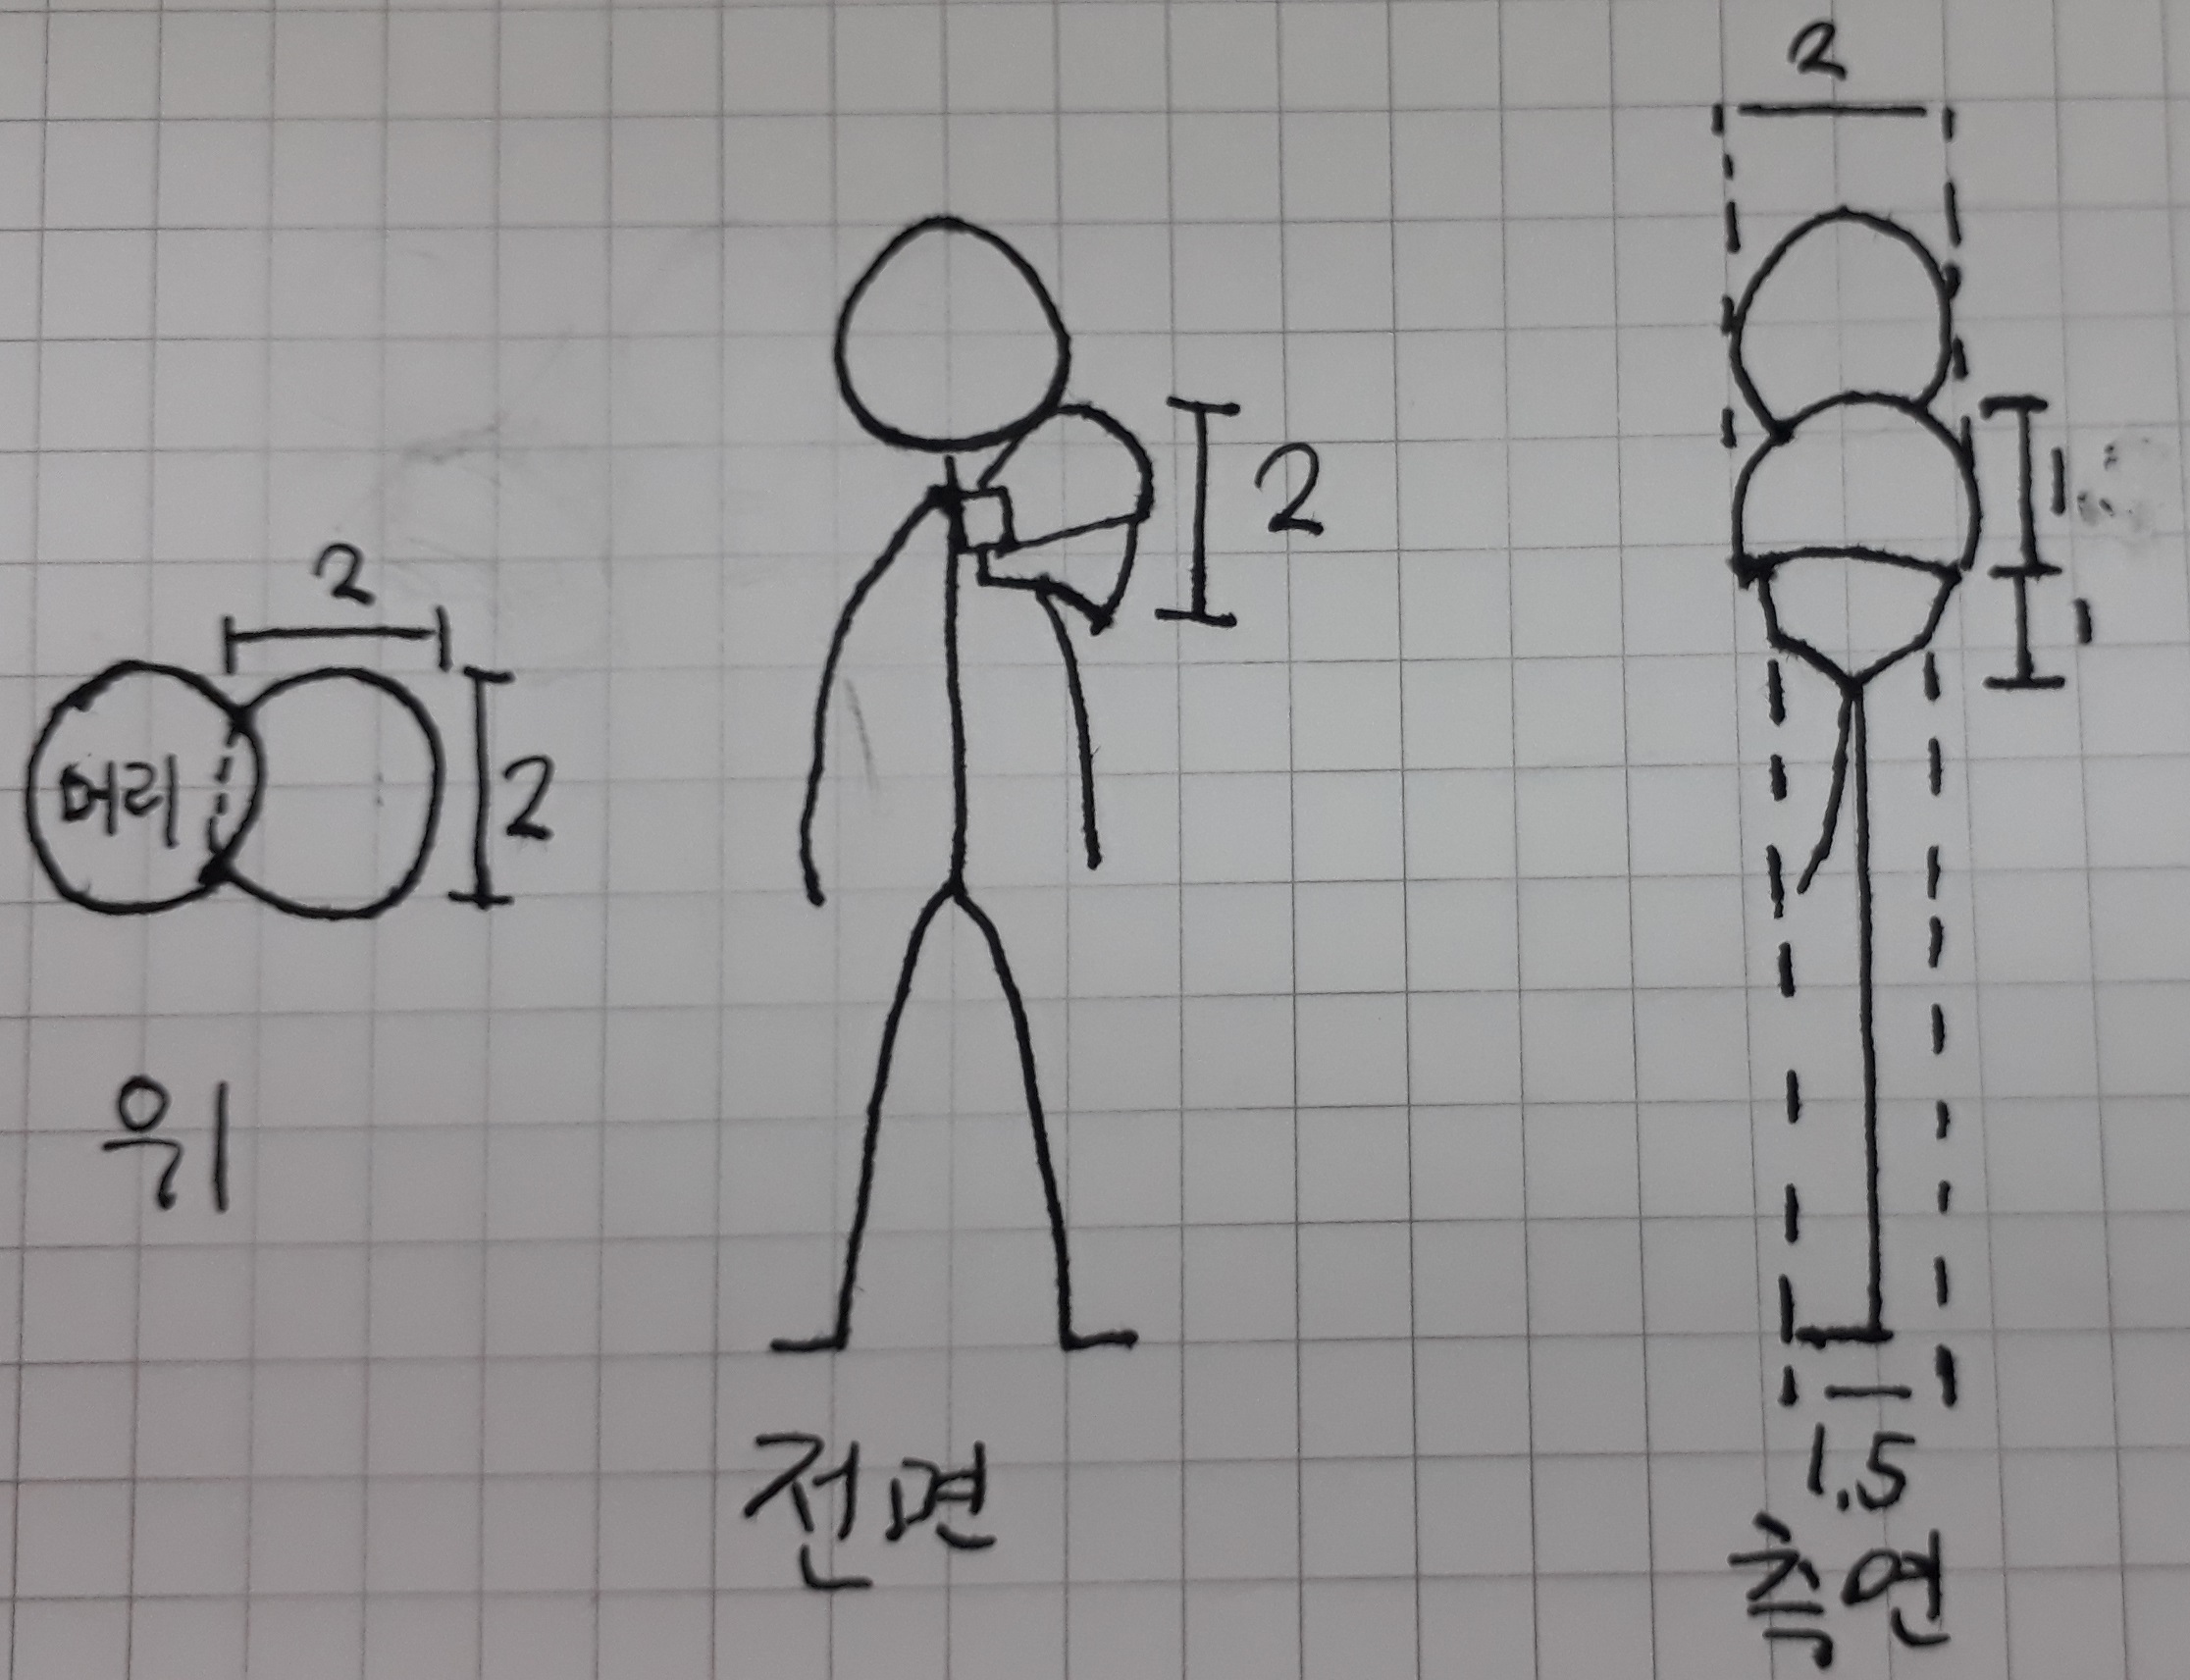 2
2
머리
위
2
전면
2
1
1
1.5
측면